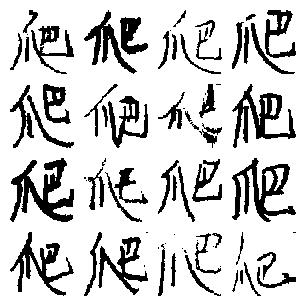 爬爬爬爬
爬爬爬爬
爬爬爬爬
爬爬爬爬